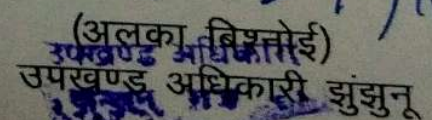 (अलका बिश्नोई)
उपखण्ड अधिकारी
उपखण्ड अधिकारी झुंझुनू